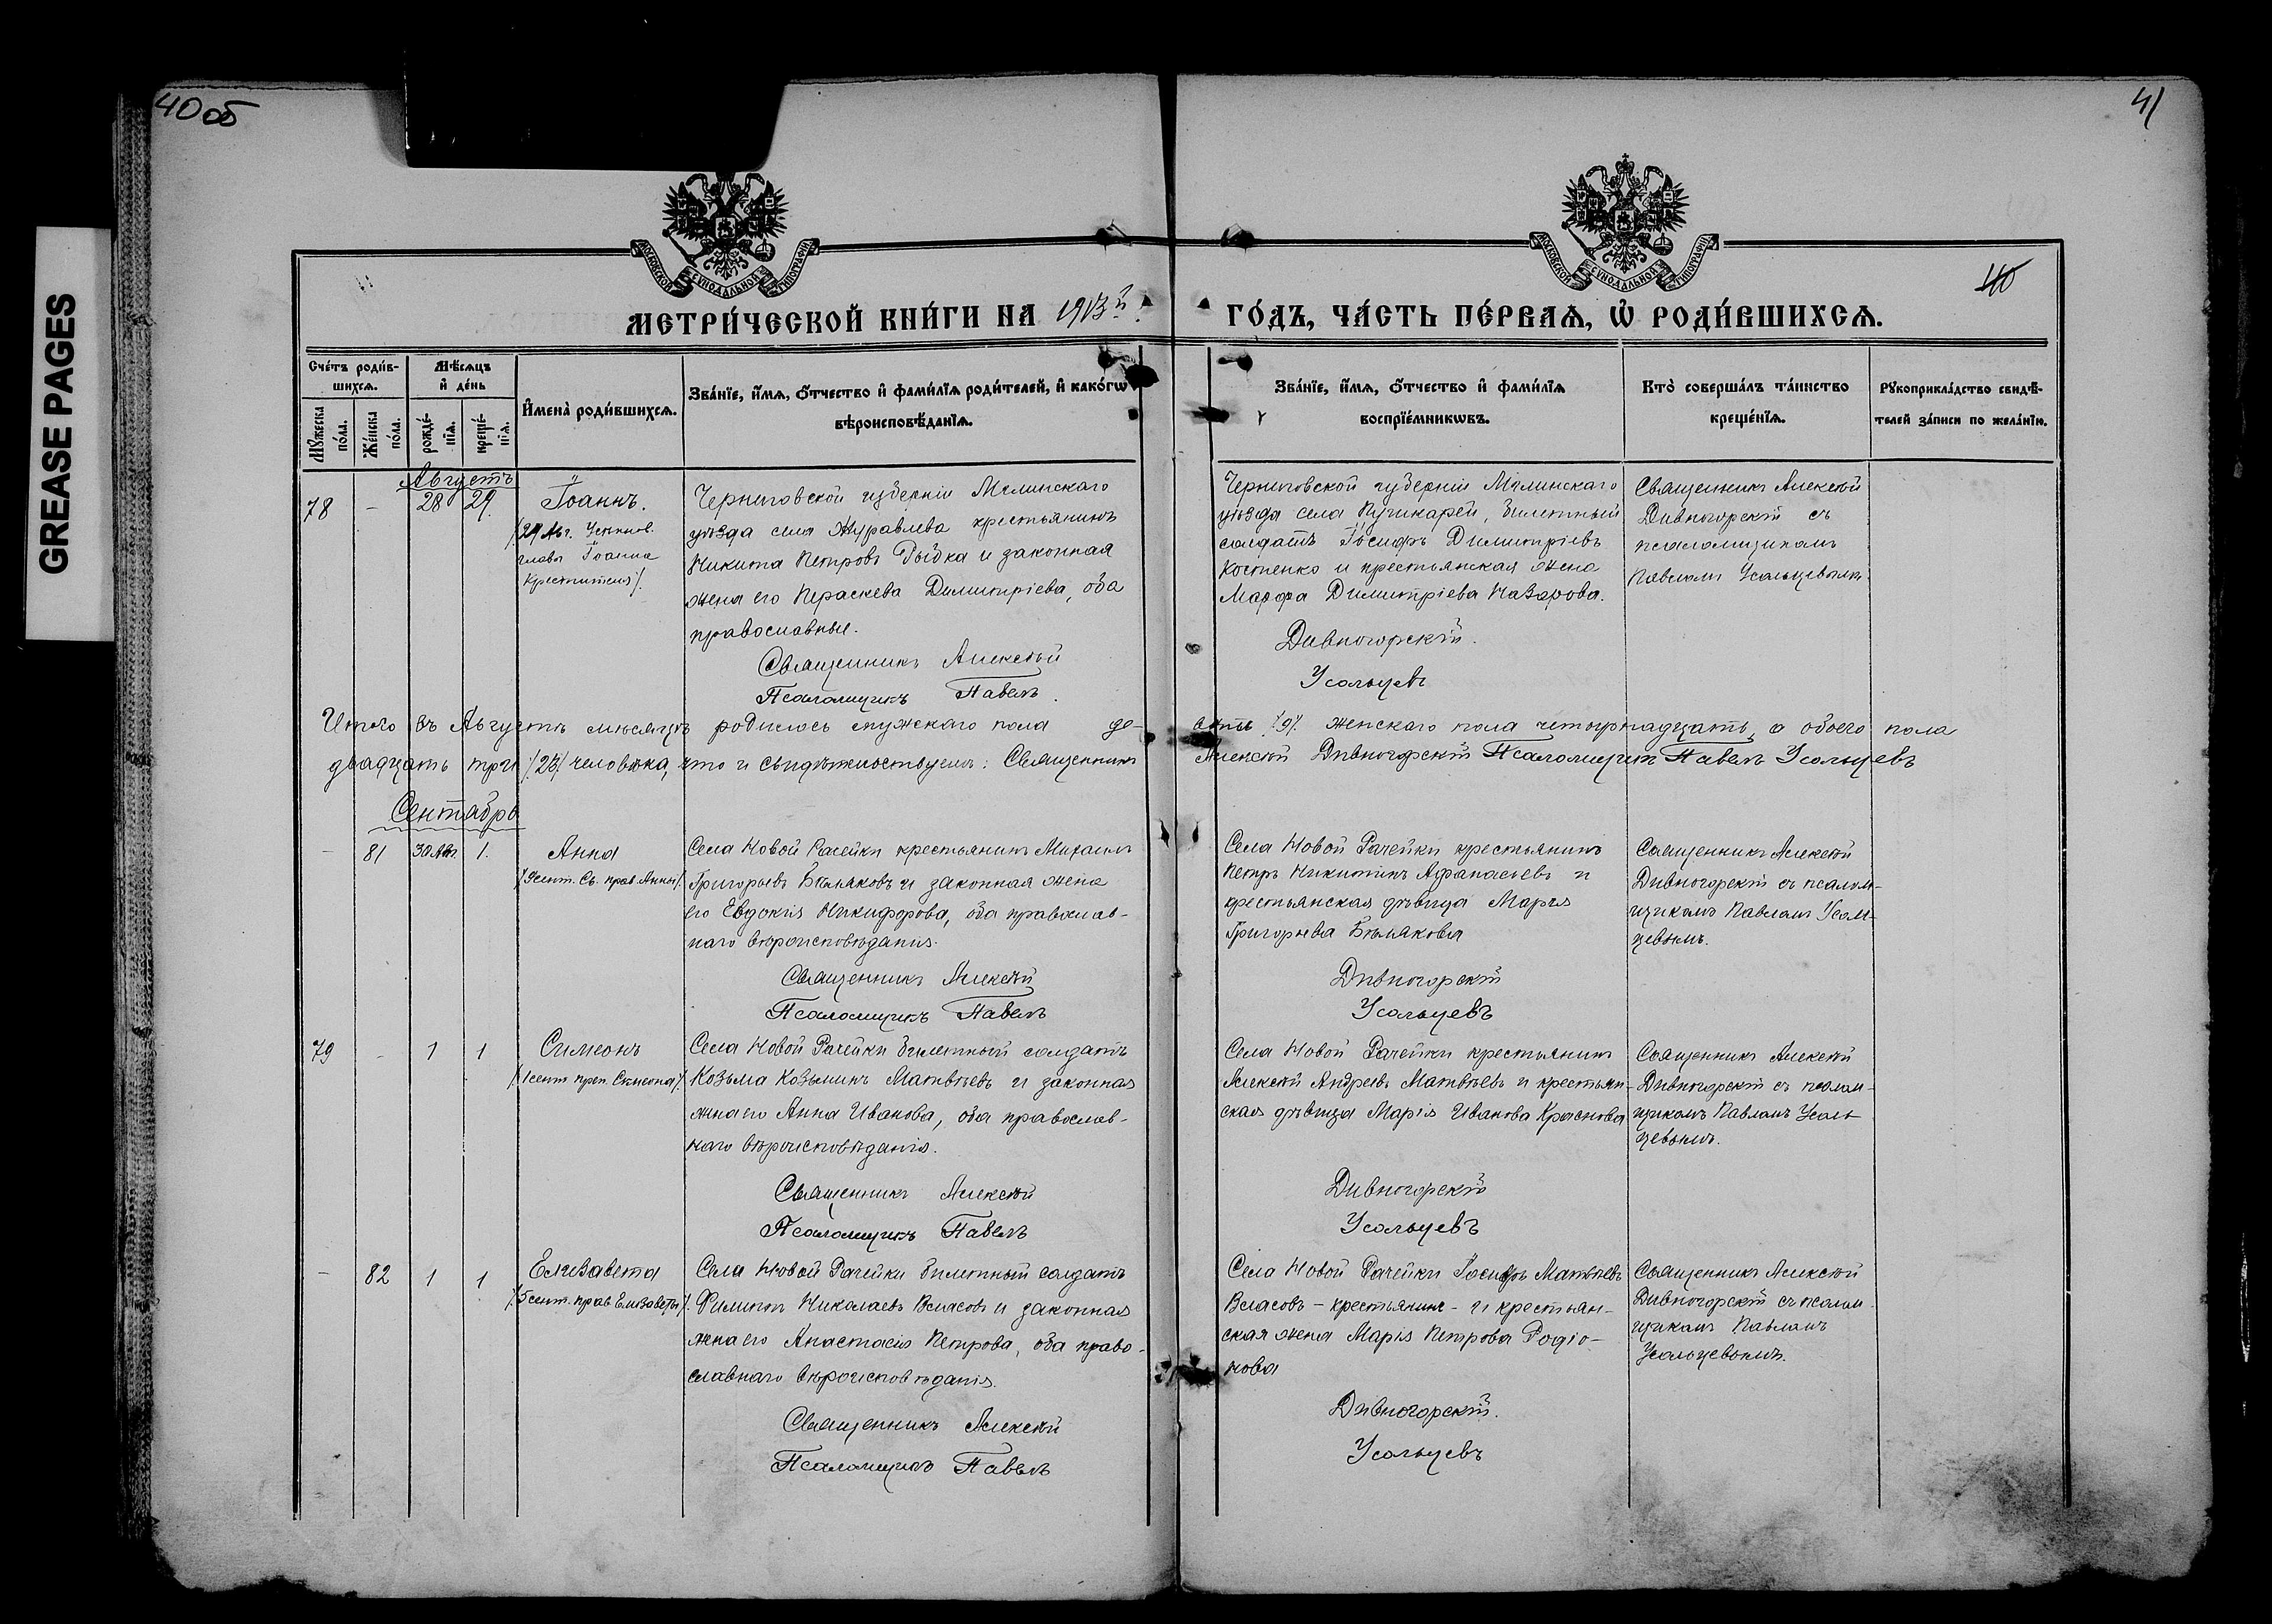 GREASE PAGES
40 об
41
40
МОСКОВСКОЙ СѴНОДАЛЬНОЙ ТИПОГРАФІИ
МОСКОВСКОЙ СѴНОДАЛЬНОЙ ТИПОГРАФІИ
МЕТРИ́ЧЕСКОЙ КНИ́ГИ НА 1913й
ГО́ДЪ, ЧА́СТЬ ПЕ́РВАѦ, Ѡ҆ РОДИ́ВШИХСѦ.
Сче́тъ роди́в-
шихсѧ.
Мѣ́сѧцъ
и҆ де́нь
Мꙋ́жеска
по́ла.
Же́нска
по́ла.
рожде́-
нїѧ.
креще́-
нїѧ.
И҆мена̀ роди́вшихсѧ.
Зва́нїе, и҆́мѧ, ѻ҆́тчество и҆ фами́лїѧ роди́телей, и҆ како́гѡ
вѣроисповѣ́данїѧ.
Зва́нїе, и҆́мѧ, ѻ҆́тчество и҆ фами́лїѧ
воспрїе́мникѡвъ.
Кто̀ соверша́лъ та́инство
креще́нїѧ.
Рꙋкоприкла́дство свидѣ́-
телей за́писи по жела́нїю.
Августъ
78 - 28 29. Іоаннъ.
/29 Авг. Усѣкнов.
главы Іоанна
Крестителя/.
Черниговской губерніи Мглинскаго
уѣзда села Журавлева крестьянинъ
Никита Петровъ Рыбка и законная
жена его Параскева Димитріева, оба
православные.
Священникъ Алексѣй
Псаломщикъ Павелъ.
Черниговской губерніи Мглинскаго
уѣзда села, билетный
солдатъ Іосифъ Димитріевъ
Костенко и крестьянская жена
Марфа Димитріева Назарова.
Дивногорскій.
Усольцевъ
Священникъ Алексѣй
Дивногорскій съ
псаломщикомъ
Павломъ Усольцевымъ.
Итого въ Августѣ мѣсяцѣ родилось мужескаго пола де-
вять /9/. женскаго пола четырнадцать, а обоего пола
двадцать три /23/ человѣка, что и свидѣтельствуемъ: Священникъ
Алексѣй Дивногорскій Псаломщикъ Павелъ Усольцевъ
Сентябрь
- 81 30 Авг. 1. Анна
/9 сент. Св. прав. Анны/.
Села Новой Рачейки крестьянинъ Михаилъ
Григорьевъ Бѣляковъ и законная жена
его Евдокія Никифорова, оба православ-
наго вѣроисповѣданія.
Священникъ Алексѣй
Псаломщикъ Павелъ
Села Новой Рачейки крестьянинъ
Петръ Никитинъ Афанасьевъ и
крестьянская дѣвица Марія
Григорьева Бѣлякова
Дивногорскій
Усольцевъ
Священникъ Алексѣй
Дивногорскій съ псалом-
щикомъ Павломъ Усоль-
цевымъ.
79 - 1 1 Симеонъ
/1 сент. преп. Симеона/.
Села Новой Рачейки билетный солдатъ
Козьма Козьминъ Матвѣевъ и законная
жена его Анна Иванова, оба православ-
наго вѣроисповѣданія.
Священникъ Алексѣй
Псаломщикъ Павелъ
Села Новой Рачейки крестьянинъ
Алексѣй Андреевъ Матвѣевъ и крестьян-
ская дѣвица Марія Иванова Краснова
Дивногорскій
Усольцевъ
Священникъ Алексѣй
Дивногорскій съ псалом-
щикомъ Павломъ Усоль-
цевымъ.
- 82 1 1 Елизавета
/5 сент. прав. Елизаветы/.
Села Новой Рачейки билетный солдатъ
Филиппъ Николаевъ Власовъ и законная
жена его Анастасія Петрова, оба право-
славнаго вѣроисповѣданія.
Священникъ Алексѣй
Псаломщикъ Павелъ
Села Новой Рачейки Іосифъ Матвѣевъ
Власовъ - крестьянинъ - и крестьян-
ская жена Марія Петрова Родіо-
нова
Дивногорскій.
Усольцевъ
Священникъ Алексѣй
Дивногорскій съ псалом-
щикомъ Павломъ
Усольцевымъ.